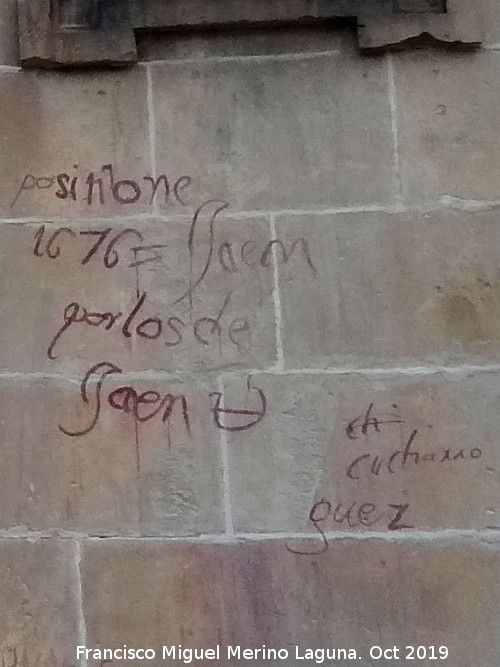 positione
1676 = Jaen
por los de
Jaen
guez
Francisco Miguel Merino Laguna. Oct 2019